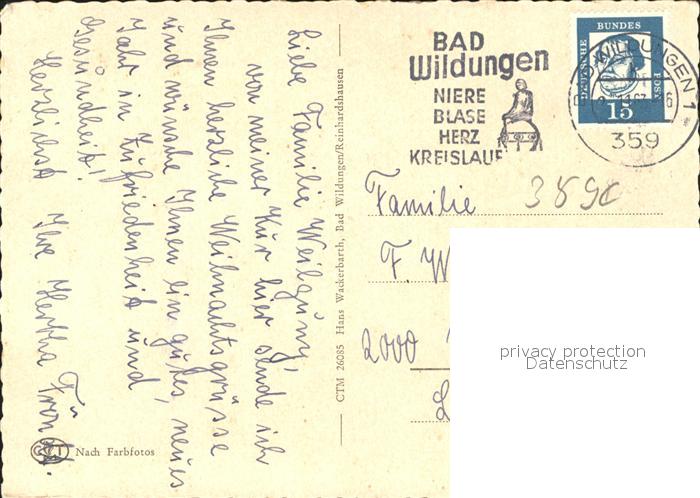 BAD
Wildungen
NIERE
BLASE
HERZ
KREISLAUF
WILDUNGEN 1
359
DEUTSCHE BUNDES POST
15
389c
Liebe Familie
von meiner Kur hier sende ich
Ihnen herzliche Weihnachtsgrüsse
und wünsche Ihnen ein gutes, neues
Jahr in Zufriedenheit und
Gesundheit!
Herzlichst Ihre Hertha
CTM 26085 Hans Wackerbarth, Bad Wildungen/Reinhardshausen
Familie
F. W
2000
L
Nach Farbfotos
privacy protection
Datenschutz